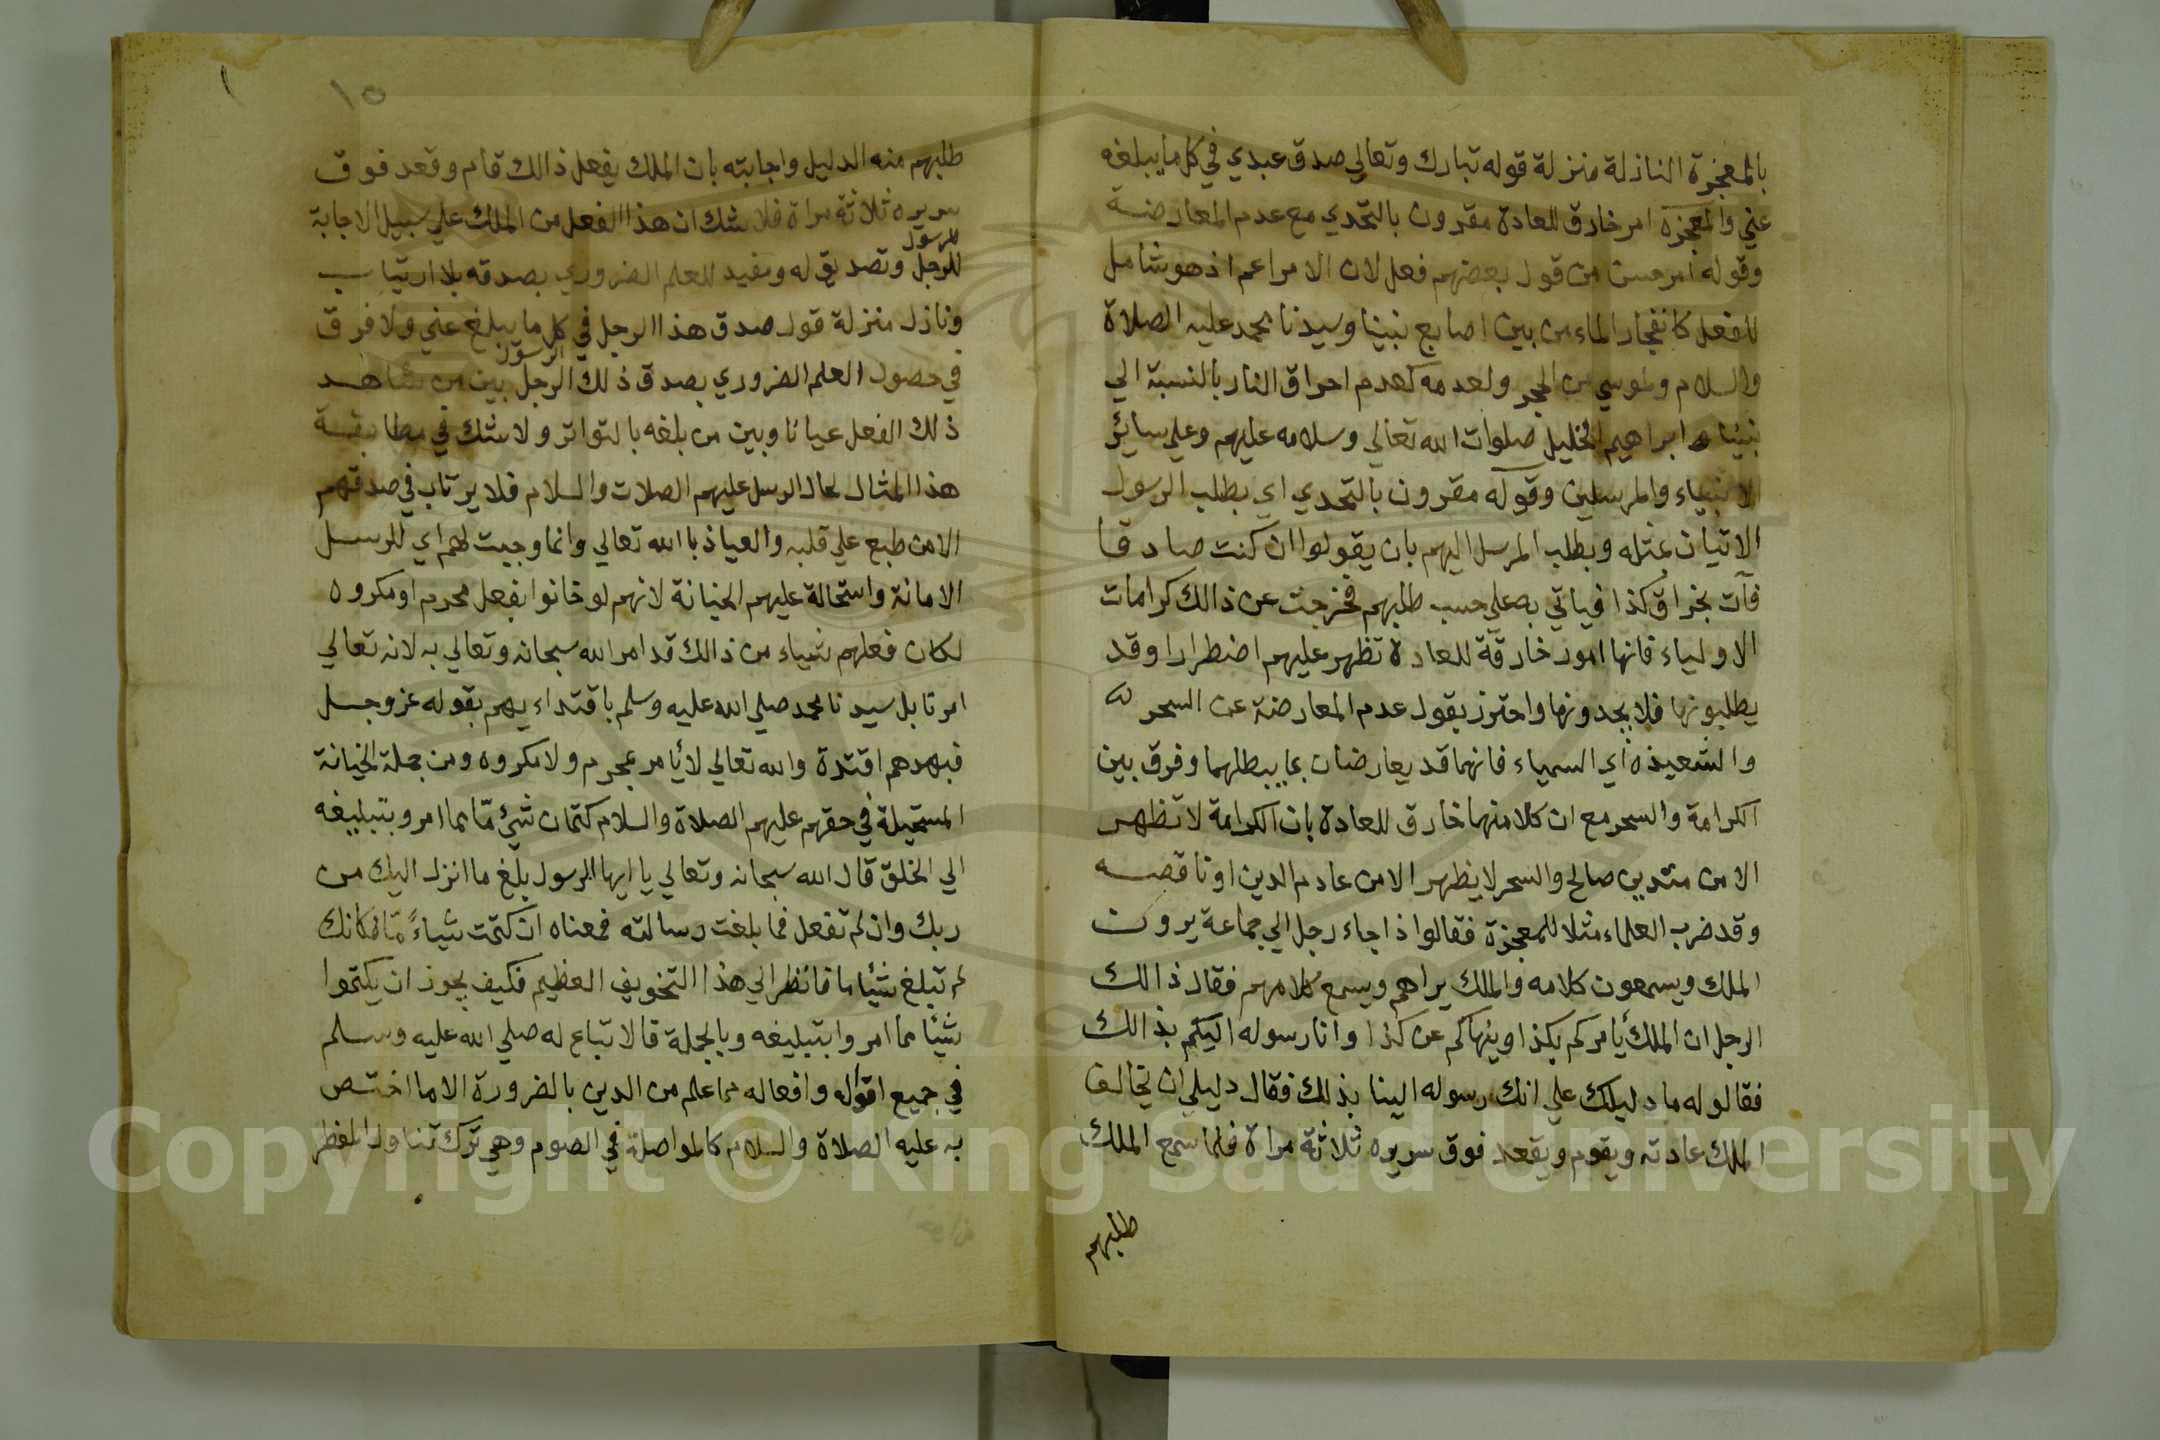 بالمعجزة النازلة منزلة قوله تبارك وتعالي صدق عبدي في كل ما يبلغه
عني والمعجزة امر خارق للعادة مقرون بالتحدي مع عدم المعارضة
وقوله امر حسن من قول بعضهم فعل لان الامر اعم اذ هو شامل
للفعل كانفجار الماء من بين اصابع نبينا وسيدنا محمد عليه الصلاة
والسلام ولموسي من الحجر ولعدمه كعدم احراق النار بالنسبة الي
ابراهيم الخليل صلوات الله تعالي وسلامه عليهم وعلي سائر
الانبياء والمرسلين وقوله مقرون بالتحدي اي بطلب الرسول
الاتيان بمثله وبطلب المرسل اليهم بان يقولوا ان كنت صادقا
فآت بخراق كذا فياتي به علي حسب طلبهم فخرجت عن ذالك كرامات
الاولياء فانها امور خارقة للعادة تظهر عليهم اضطرارا وقد
يطلبونها فلا يجدونها واحترز بقول عدم المعارضة عن السحر
والشعيذه اي السمياء فانهما قد يعارضان بما يبطلهما وفرق بين
الكرامة والسحر مع ان كلا منهما خارق للعادة بان الكرامة لا تظهر
الا من متدين صالح والسحر لا يظهر الا من عادم الدين او ناقصه
وقد ضرب العلماء مثلا للمعجزة فقالوا اذا جاء رجل الي جماعة يرون
الملك ويسمعون كلامه والملك يراهم ويسمع كلامهم فقال ذالك
الرجل ان الملك يأمركم بكذا وينهاكم عن كذا وانا رسوله اليكم بذالك
فقالو له ما دليلك علي انك رسوله الينا بذلك فقال دليلي ان يخالف
الملك عادته ويقوم ويقعد فوق سريره ثلاثة مراة فلما سمع الملك
طلبهم
١٥
طلبهم منه الدليل واجابته بان الملك يفعل ذالك قام وقعد فوق
سريره ثلاثة مراة فلا شك ان هذا الفعل من الملك علي سبيل الاجابة
للرسول
للرجل وتصديق له ومفيد للعلم الضروري بصدقه بلا ارتياب
ونازل منزلة قول صدق هذا الرجل في كل ما يبلغ عني ولا فرق
الرسول
في حصول العلم الضروري بصدق ذلك الرجل بين من شاهد
ذلك الفعل عيانا وبين من بلغه بالتواتر ولا شك في مطابقة
هذا المثال لحال الرسل عليهم الصلات والسلام فلا يرتاب في صدقهم
الا من طبع علي قلبه والعياذ باالله تعالي وانما وجبت لهم اي للرسل
الامانة واستحالة عليهم الخيانة لانهم لو خانوا بفعل محرم او مكروه
لكان فعلهم شياء من ذالك قد امر الله سبحانه وتعالي به لانه تعالي
امرنا بل سيدنا محمد صلي الله عليه وسلم باقتداء بهم بقوله عز وجل
فبهدهم اقتدة والله تعالي لا يأمر بمحرم ولا مكروه ومن جملة الخيانة
المستحيلة في حقهم عليهم الصلاة والسلام كتمان شئ مما امرو بتبليغه
الي الخلق قال الله سبحانه وتعالي يا ايها الرسول بلغ ما انزل اليك من
ربك وان لم تفعل فما بلغت رسالته فمعناه ان كتمت شياءً ما فكانك
لم تبلغ شيأ ما فانظر الي هذا التخويف العظيم فكيف يجوز ان يكتموا
شيأ مما امروا بتبليغه وبالجملة فالاتباع له صلي الله عليه وسلم
في جميع اقواله وافعاله مما علم من الدين بالضرورة الا ما اختص
به عليه الصلاة والسلام كالمواصلة في الصوم وهي ترك تناول المفطر
Copyright © King Saud University